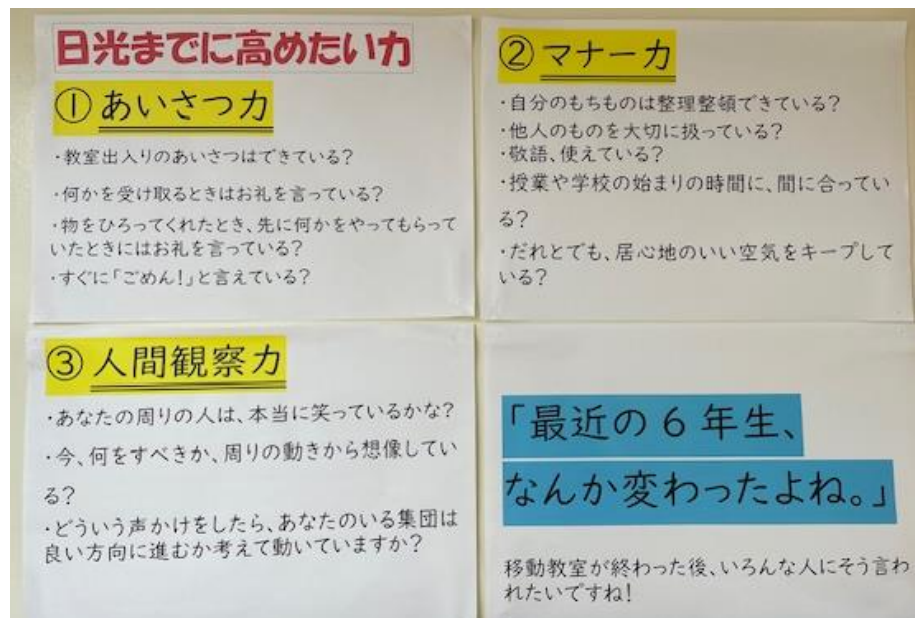 日光までに高めたい力
① あいさつ力
・教室出入りのあいさつはできている?
・何かを受け取るときはお礼を言っている?
・物をひろってくれたとき、先に何かをやってもらって
いたときにはお礼を言っている?
・すぐに「ごめん!」と言えている?
② マナー力
・自分のもちものは整理整頓できている?
・他人のものを大切に扱っている?
・敬語、使えている?
・授業や学校の始まりの時間に、間に合ってい
る?
・だれとでも、居心地のいい空気をキープして
いる?
③ 人間観察力
・あなたの周りの人は、本当に笑っているかな?
・今、何をすべきか、周りの動きから想像してい
る?
・どういう声かけをしたら、あなたのいる集団は
良い方向に進むか考えて動いていますか?
「最近の6年生、
なんか変わったよね。」
移動教室が終わった後、いろんな人にそう言わ
れたいですね!